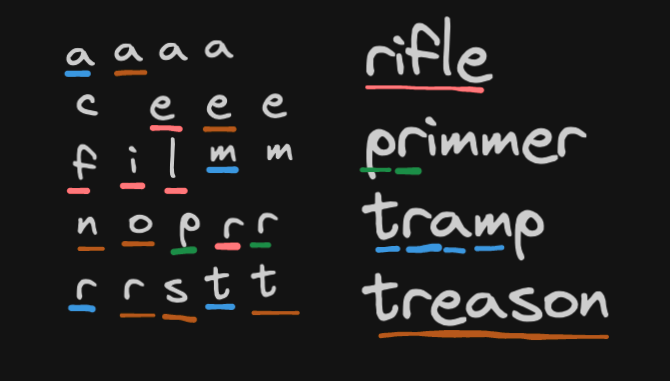 a a a a
c e e e
f i l m m
n o p r r
r r s t t
rifle
primmer
tramp
treason